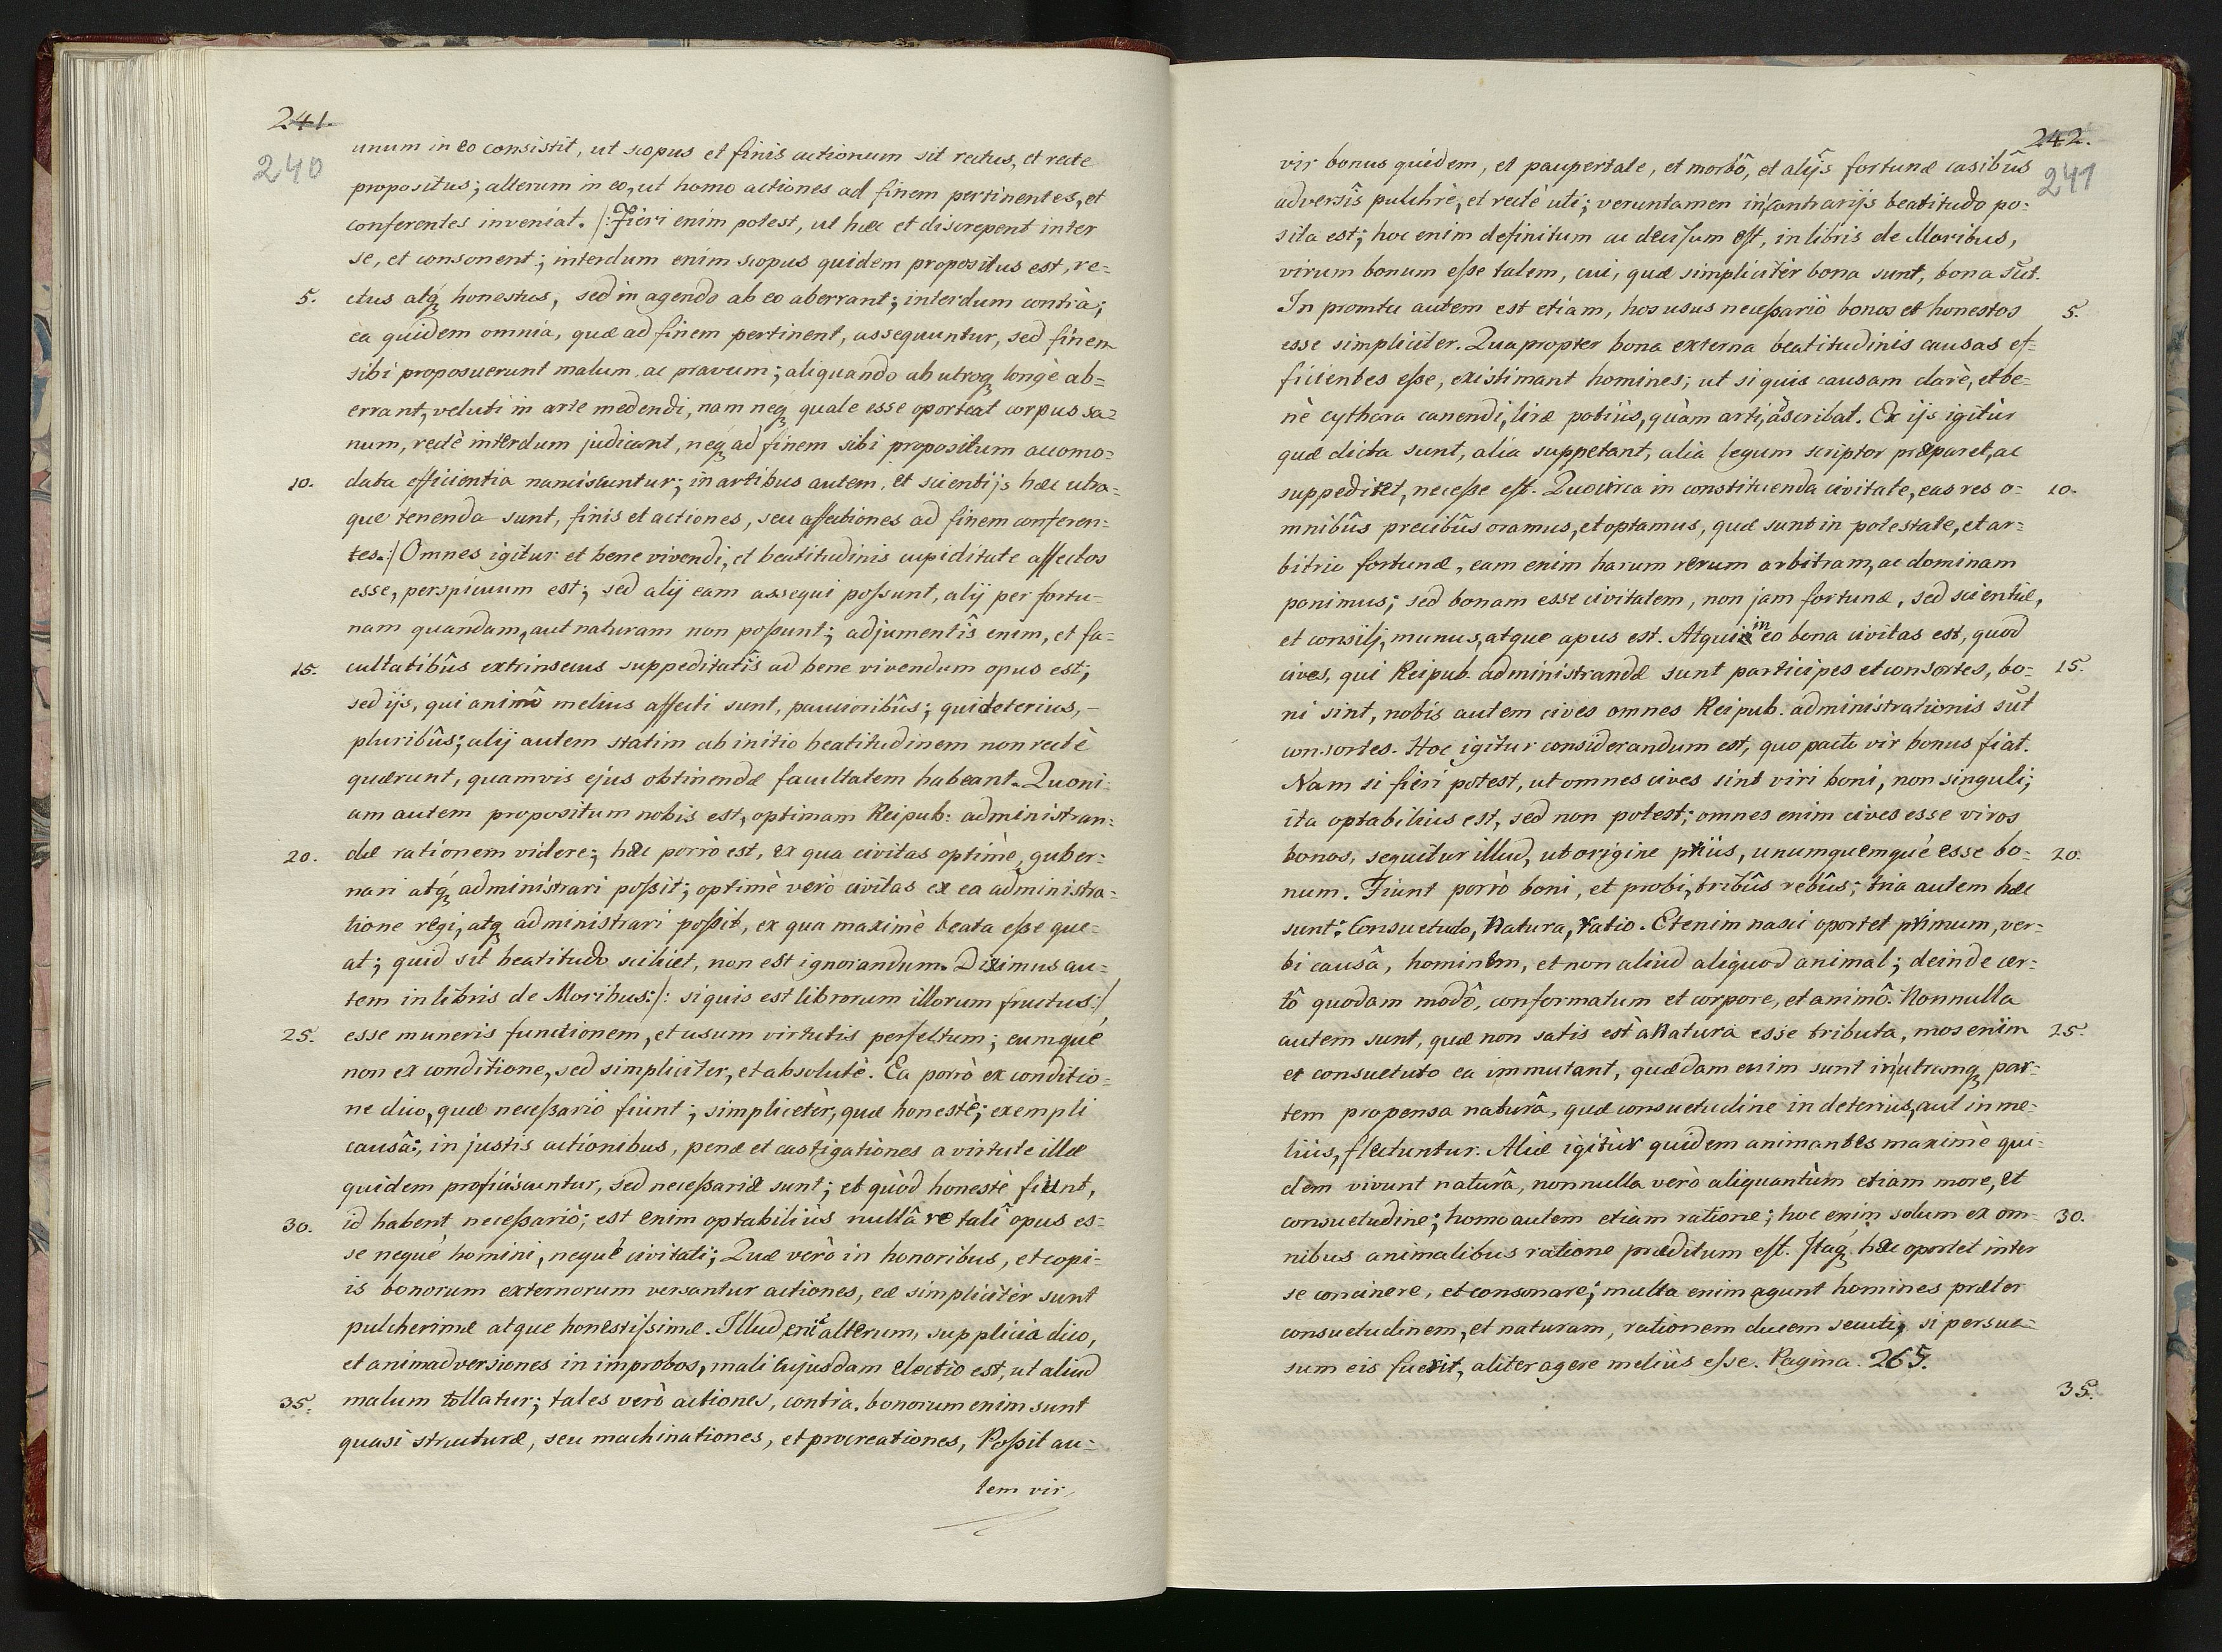 241.
240
unum in eo consistit, ut scopus et finis actionum sit rectus, et recte
propositus; alterum in eo, ut homo actiones ad finem pertinentes, et
conferentes inveniat. /: Fieri enim potest, ut hæc et discrepent inter
se, et consonent; interdum enim scopus quidem propositus est, re=
5. ctus atq₃ honestus, sed in agendo ab eo aberrant; interdum contrà;
ea quidem omnia, quæ ad finem pertinent, assequuntur, sed finem
sibi proposuerunt malum ac pravum; aliquando ab utroq₃ longè ab=
errant, veluti in arte medendi, nam neq₃ quale esse oporteat corpus sa=
num, rectè interdum judicant, neq₃ ad finem sibi propositum accomo=
10. data efficientia nanciscuntur; in artibus autem, et scientijs hæc utra=
que tenenda sunt, finis et actiones, seu affectiones ad finem conferen=
tes.:/ Omnes igitur et bene vivendi, et beatitudinis cupiditate affectos
esse, perspicuum est; sed alij eam assequi possunt, alij per fortu=
nam quandam, aut naturam non possunt; adjumentîs enim, et fa=
15. cultatibûs extrinsecus suppeditatîs ad bene vivendum opus est;
sed ijs, qui animô melius affecti sunt, paucioribûs; qui deterius, –
pluribûs; alij autem statim ab initio beatitudinem non rectè
quærunt, quamvis ejus obtinendæ facultatem habeant. Quoni=
am autem propositum nobis est, optimam Reipub: administran=
20. dæ rationem videre; hæc porrò est, ex qua civitas optimè, guber=
nari atq₃ administrari possit; optimè verò civitas ex ea administra=
tione regi, atq₃ administrari possit, ex qua maximè beata esse que=
at; quid sit beatitudo scilicet, non est ignorandum. Diximus au=
tem in libris de Moribus: /: si quis est librorum illorum fructus:/
25. esse muneris functionem, et usum virtutis perfectum; eumquè
non ex conditione, sed simpliciter, et absolutè. Ea porrò ex conditio=
ne dico, quæ necessariò fiunt; simplicetèr, quæ honestè; exempli
causâ:, in justis actionibus, penæ et castigationes a virtute illæ
quidem proficiscuntur, sed necessariæ sunt; et quòd honestè fiunt,
30. id habent necessariò; est enim optabiliùs nullâ re tali opus es=
se nequè homini, nequè civitati; Quæ verò in honoribus, et copi=
is bonorum externorum versantur actiones, eæ simplicitèr sunt
pulcherimæ atque honestissimæ. Illud eni alterum, supplicia dico,
et animadversiones in improbos, mali cujusdam electio est, ut aliud
35. malum tollatur; tales verò actiones, contrà. bonorum enim sunt
quasi structuræ, seu machinationes, et procreationes, Possit au=
tem vir
242.
241
vir bonus quidem, et paupertate, et morbô, et alijs fortunæ casibûs
adversîs pulchrè, et rectè uti; veruntamen in contrarijs beatitudo po=
sita est; hoc enim definitum ac decisum est, in libris de Moribus,
virum bonum esse talem, cui, quæ simplicitèr bona sunt, bona sũt.
In promtu autem est etiam, hos usus necessariò bonos et honestos 5.
esse simpliciter. Quapropter bona externa beatitudinis causas ef=
ficientes esse, existimant homines; ut si quis causam clarè, et be=
nè cythara canendi, liræ potiùs, quàm arti, ascribat. Ex ijs igitùr
quæ dicta sunt, alia suppetant, alia legum scriptor præparet, ac
suppeditet, necesse est. Quocirca in constituenda civitate, eas res o= 10.
mnibûs precibûs oramus, et optamus, quæ sunt in potestate, et ar=
bitrio fortunæ, eam enim harum rerum arbitram, ac dominam
ponimus; sed bonam esse civitatem, non jam fortunæ, sed scientiæ,
et consilj, munus, atque opus est. Atqui in eo bona civitas est, quod
cives, qui Reipub. administrandæ sunt participes et consortes, bo= 15.
ni sint, nobis autem cives omnes Reipub. administrationis sũt
consortes. Hoc igitur considerandum est, quo pacto vir bonus fiat.
Nam si fieri potest, ut omnes cives sint viri boni, non singuli;
ita optabilius est, sed non potest; omnes enim cives esse viros
bonos, sequitur illud, ut origine priùs, unumquemquè esse bo= 20.
num. Fiunt porrò boni, et probi, tribûs rebûs; tria autem hæc
sunt: Consuetudo, Natura, ratio. Etenim nasci oportet primum, ver=
bi causâ, hominem, et non aliud aliquod animal; deinde cer=
tô quodam modô, conformatum et corpore, et animô. Nonnulla
autem sunt, quæ non satis est à Natura esse tributa, mos enim 25.
et consuetuto ea immutant, quædam enim sunt in utramq₃ par=
tem propensa naturâ, quæ consuetudine in deterius, aut in me=
liùs, flectuntur. Aliæ igitùr quidem animantes maximè qui=
dem vivunt naturâ, nonnulla verò aliquantùm etiam more, et
consuetudine; homo autem etiam ratione; hoc enim solum ex om= 30.
nibus animalibus ratione præditum est. Itaq₃ hæc oportet inter
se concinere, et consonare; multa enim agunt homines præter
consuetudinem, et naturam, rationem ducem secuti, si persua=
sum eis fuerit, aliter agere meliùs esse. Pagina. 265.
35.